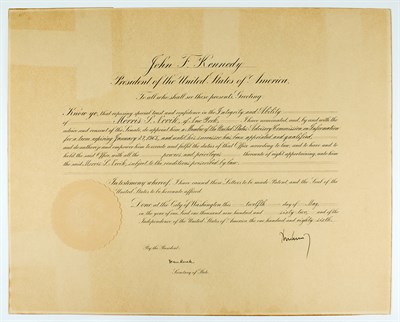 John F. Kennedy
President of the United States of America.
To all who shall see these presents, Greeting:
Know ye, that reposing special trust and confidence in the Integrity and Ability
of Morris S. Novik, of New York, I have nominated, and, by and with the
advice and consent of the Senate, do appoint him a Member of the United States Advisory Commission on Information
for a term expiring January 27, and until his successor has been appointed and qualified,
and do authorize and empower him to execute and fulfil the duties of that Office according to law, and to have and to
hold the said Office, with all the powers and privileges thereunto of right appertaining, unto him
the said Morris S. Novik, subject to the conditions prescribed by law.
In testimony whereof, I have caused these Letters to be made Patent and the Seal of the
United States to be hereunto affixed.
Done at the City of Washington this twelfth day of May
in the year of our Lord one thousand nine hundred and sixty-two and of the
Independence of the United States of America the one hundred and eighty-sixth.
By the President:
Secretary of State.